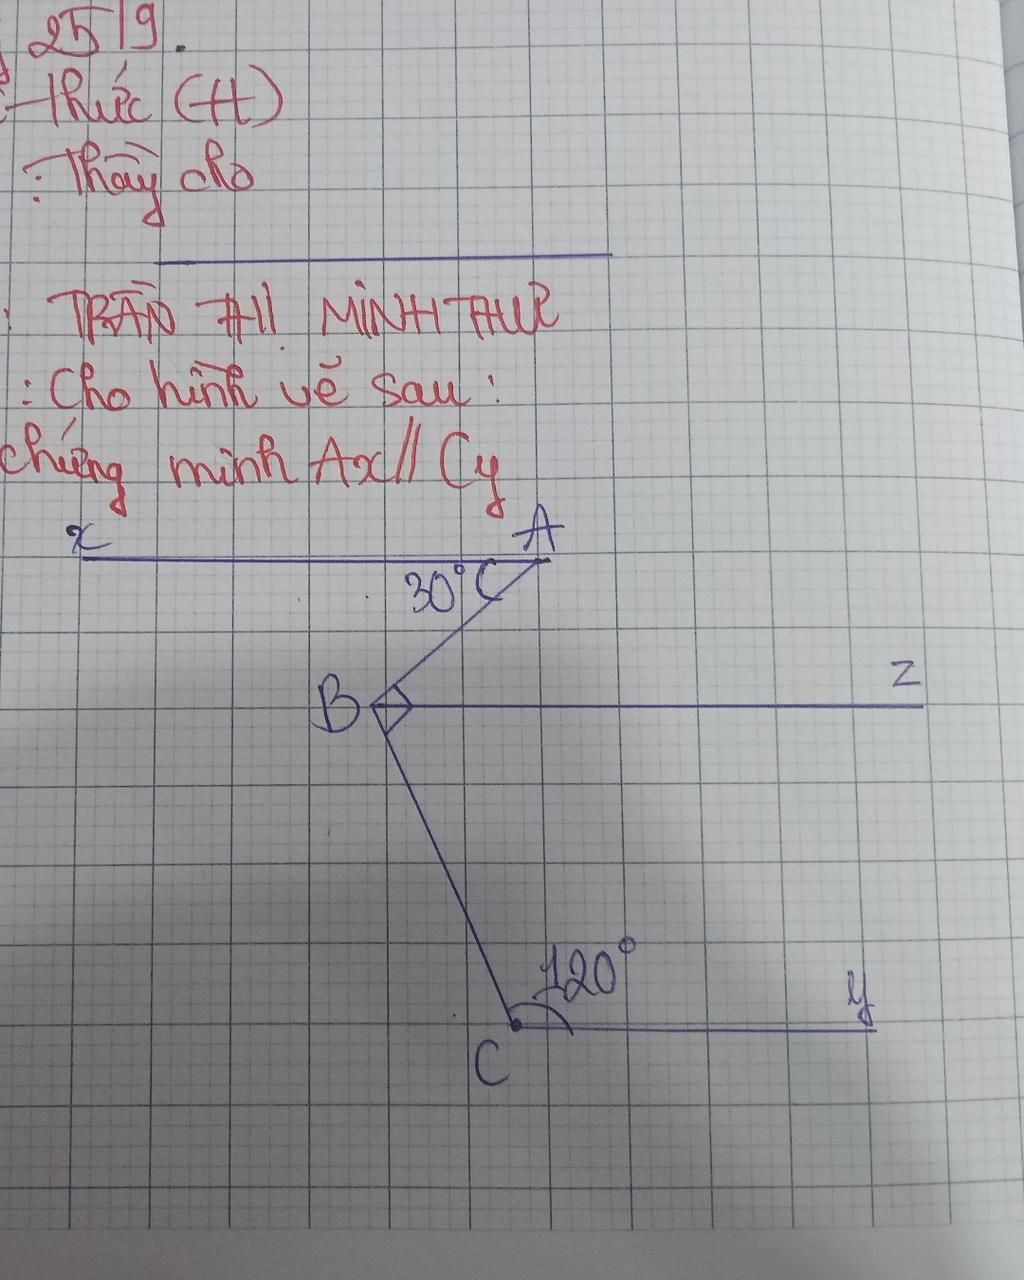 25/9.
thức (H)
: Thầy cho
: TRẦN THỊ MINH THƯ
: Cho hình vẽ sau :
chứng minh Ax // Cy
x A
30°
B z
120°
y
C